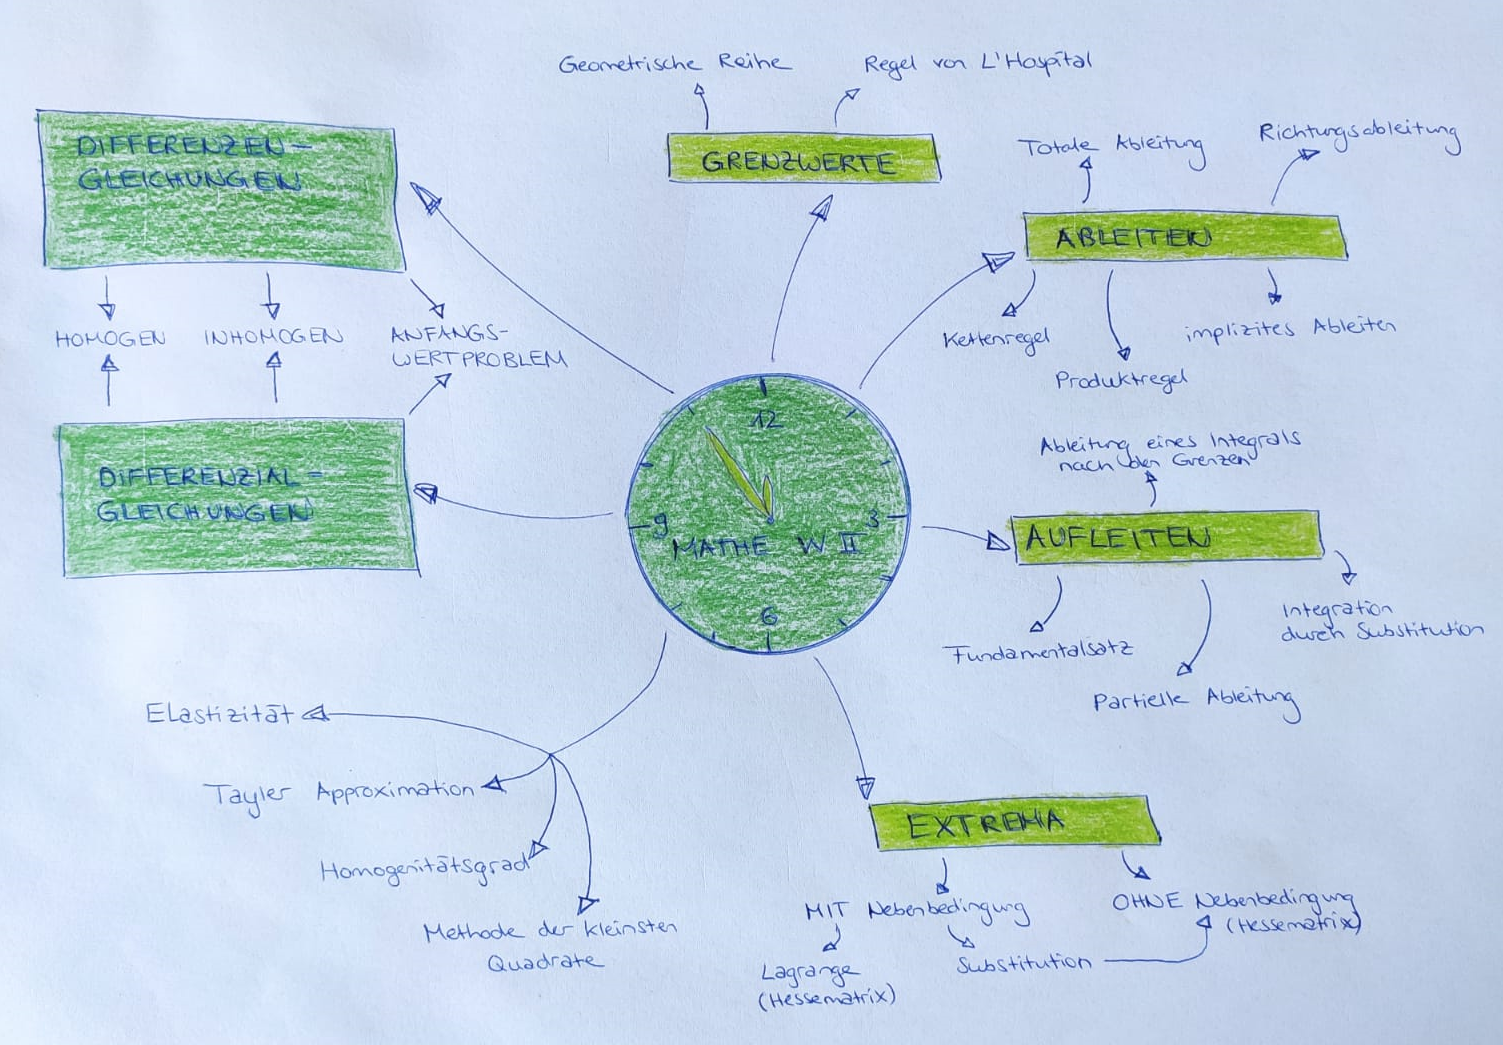 Geometrische Reihe
Regel von L'Hospital
GRENZWERTE
DIFFERENZEN-
GLEICHUNGEN
HOMOGEN
INHOMOGEN
ANFANGS-
WERTPROBLEM
DIFFERENZIAL-
GLEICHUNGEN
Totale Ableitung
Richtungsableitung
ABLEITEN
Kettenregel
Produktregel
implizites Ableiten
12
9
3
6
MATHE W II
Ableitung eines Integrals
nach den Grenzen
AUFLEITEN
Fundamentalsatz
Partielle Ableitung
Integration
durch Substitution
Elastizität
Tayler Approximation
Homogenitätsgrad
Methode der kleinsten
Quadrate
EXTREMA
MIT Nebenbedingung
Lagrange
(Hessematrix)
Substitution
OHNE Nebenbedingung
(Hessematrix)